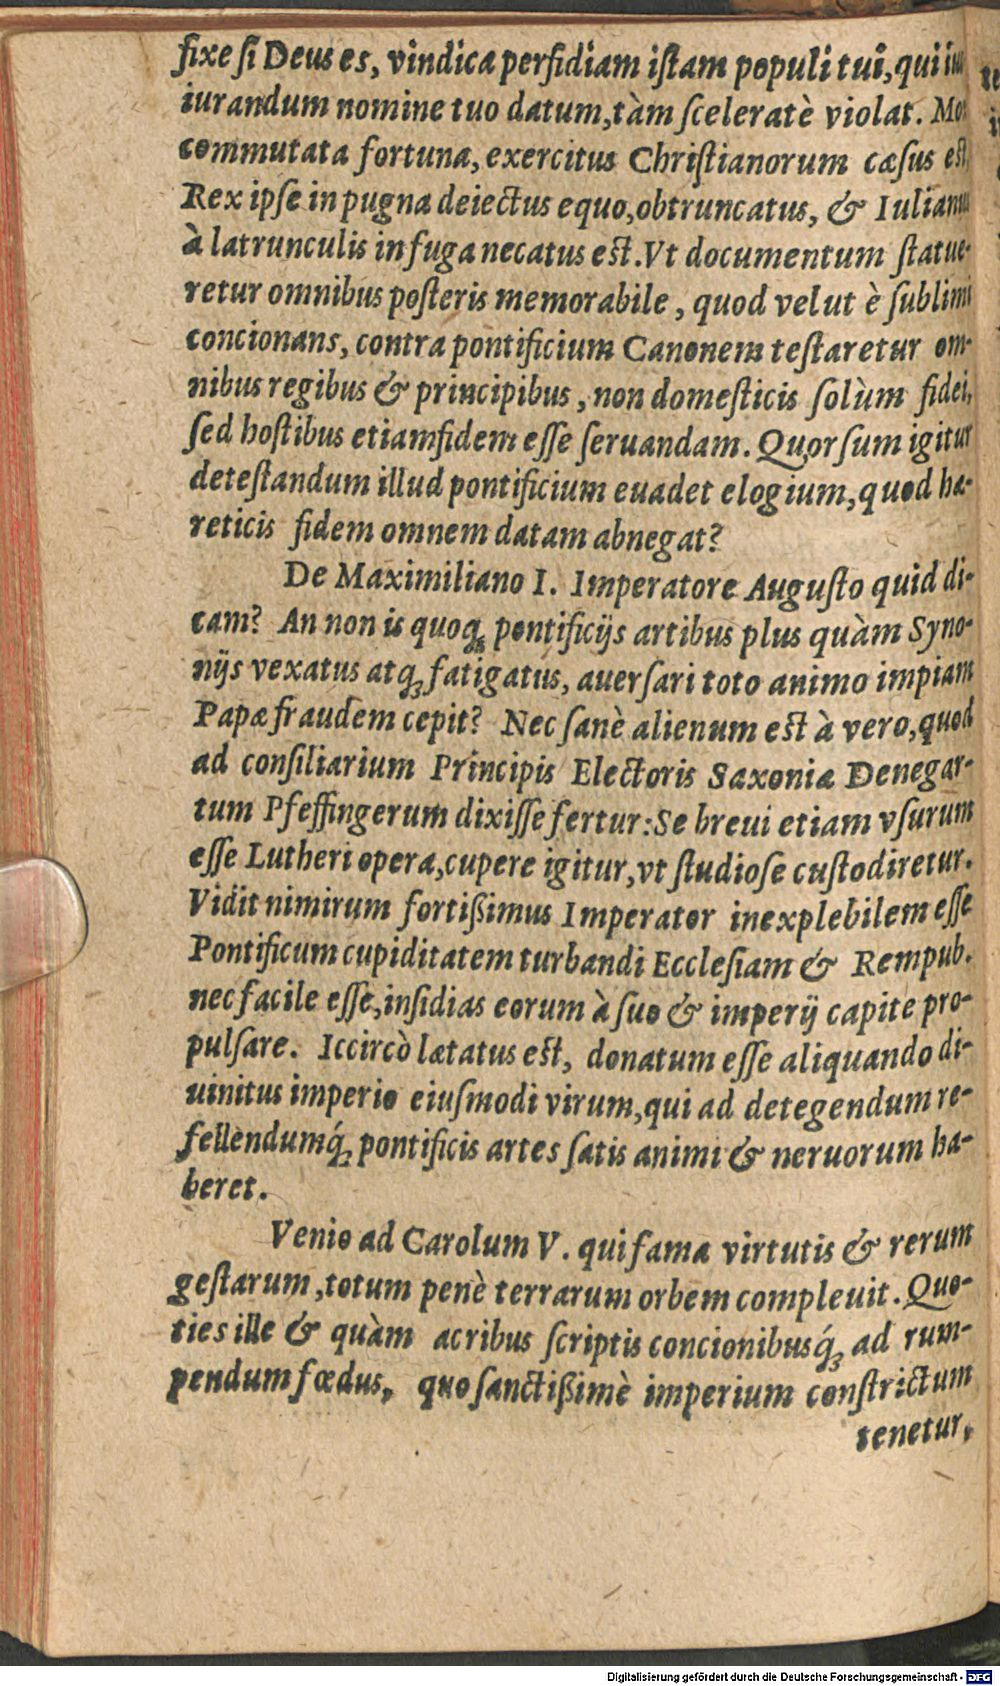 fixe ſi Deus es, vindica perfidiam iſtam populi tui, qui
iurandum nomine tuo datum, tàm ſceleratè violat. Mox
commutata fortuna, exercitus Chriſtianorum cæsus eſt,
Rex ipſe in pugna deiectus equo, obtruncatus, & Iulianus
à latrunculis in fuga necatus eſt. Vt documentum ſtatue-
retur omnibus poſteris memorabile, quod velut è ſublimi
concionans, contra pontificium Canonem teſtaretur om-
nibus regibus & principibus, non domeſticis ſolùm fidei,
ſed hoſtibus etiam fidem eſſe ſeruandam. Quorſum igitur
deteſtandum illud pontificium euadet elogium, quod hæ-
reticis fidem omnem datam abnegat?
De Maximiliano I. Imperatore Auguſto quid di-
cam? An non is quoq; pontificijs artibus plus quàm Syno-
nijs vexatus atq; fatigatus, auerſari toto animo impiam
Papæ fraudem cepit? Nec ſanè alienum eſt à vero, quod
ad conſiliarium Principis Electoris Saxoniæ Denegar-
tum Pfeffingerum dixiſſe fertur: Se breui etiam vſurum
eſſe Lutheri opera, cupere igitur, vt ſtudioſe cuſtodiretur.
Vidit nimirum fortißimus Imperator inexplebilem eſſe
Pontificum cupiditatem turbandi Eccleſiam & Rempub.
nec facile eſſe, inſidias eorum à ſuo & imperij capite pro-
pulſare. Iccircò lætatus eſt, donatum eſſe aliquando di-
uinitus imperio eiuſmodi virum, qui ad detegendum re-
fellendumq́; pontificis artes ſatis animi & neruorum ha-
beret.
Venio ad Carolum V. qui fama virtutis & rerum
geſtarum, totum penè terrarum orbem compleuit. Quo-
ties ille & quàm acribus ſcriptis concionibusq́; ad rum-
pendum fœdus, quo ſanctißimè imperium conſtrictum
tenetur,
Digitalisierung gefördert durch die Deutsche Forschungsgemeinschaft - DFG